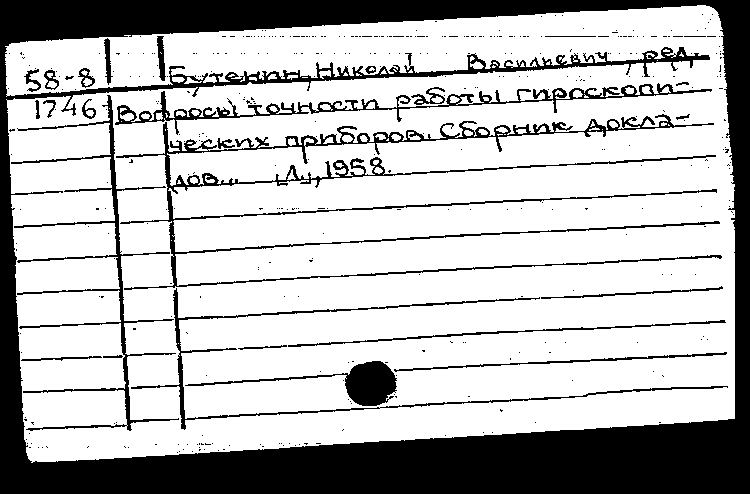 58-8 Бутенин, Николай Васильевич, ред.
1746 Вопросы точности работы гироскопи-
ческих приборов. Сборник докла-
дов.. [Л.], 1958.